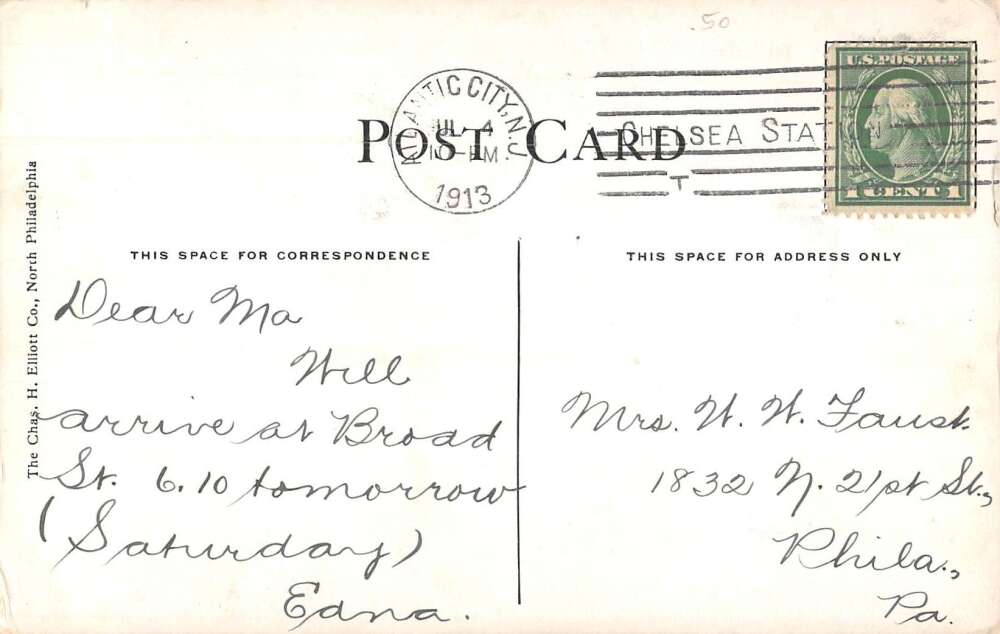 .50
U.S. POSTAGE
1 CENT 1
ATLANTIC CITY, N.J.
JUL 4
PM
1913
CHELSEA STATION
T
POST CARD
THIS SPACE FOR CORRESPONDENCE
Dear Ma
Will
arrive at Broad
St. 6.10 tomorrow
(Saturday)
Edna.
THIS SPACE FOR ADDRESS ONLY
Mrs. W. W. Faust.
1832 N. 21st St.,
Phila.,
Pa.
The Chas. H. Elliott Co., North Philadelphia